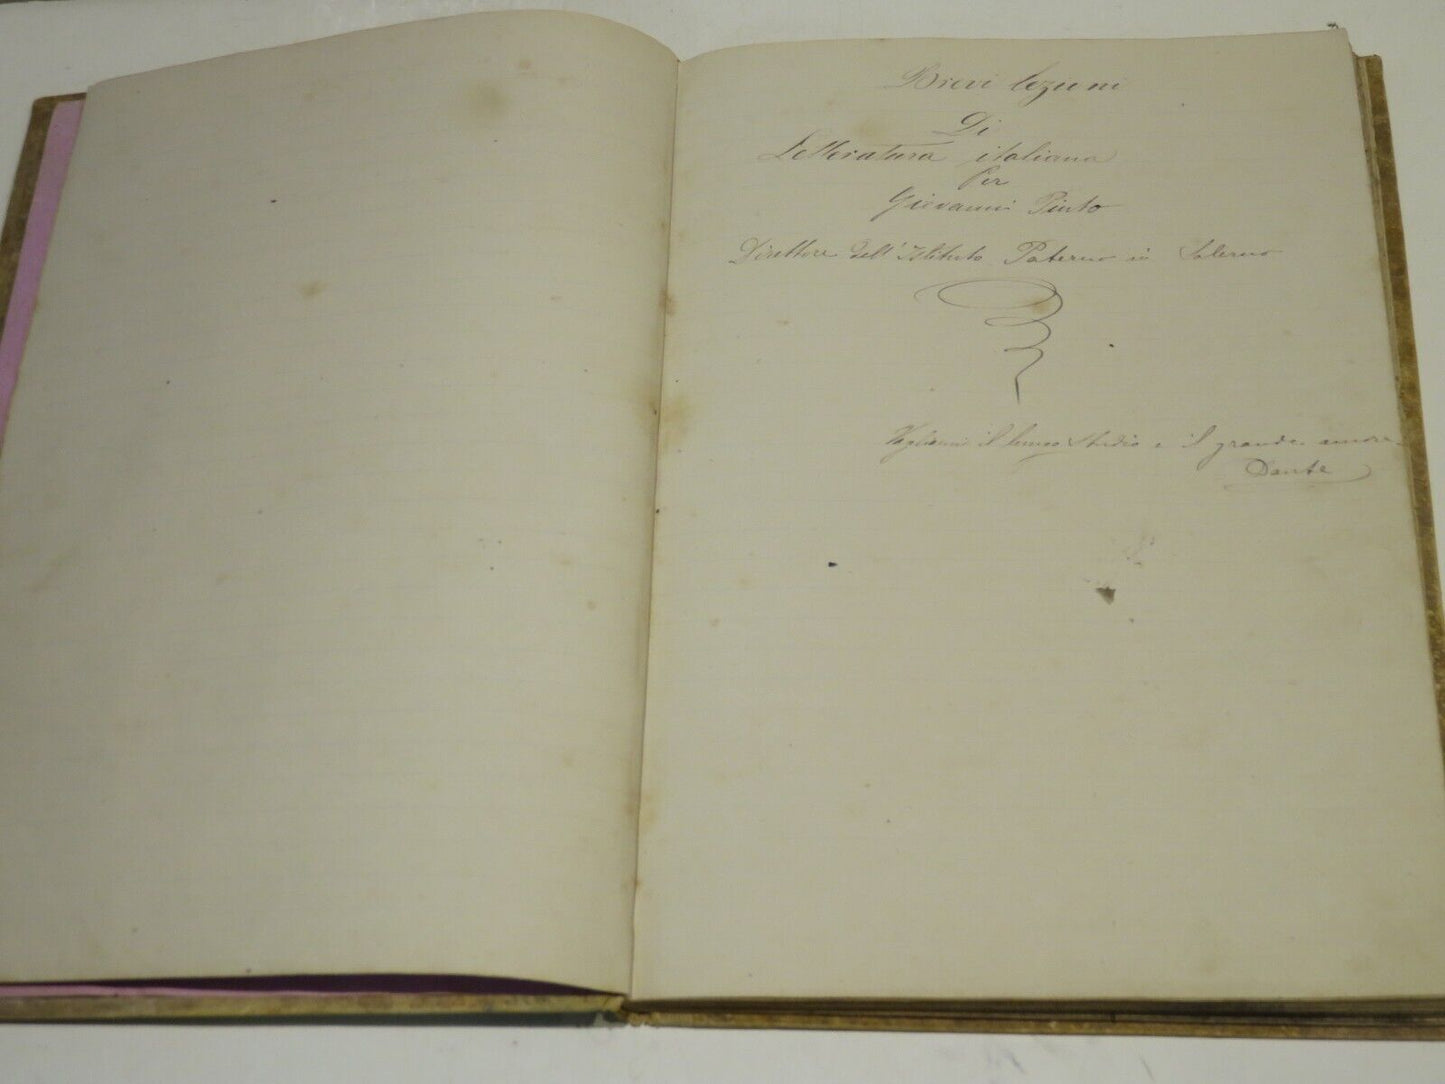 Brevi lezioni
Di
Letteratura italiana
Per
Giovanni Pinto
Direttore dell'Istituto Paterno in Salerno
Vagliami il lungo studio e il grande amore.
Dante